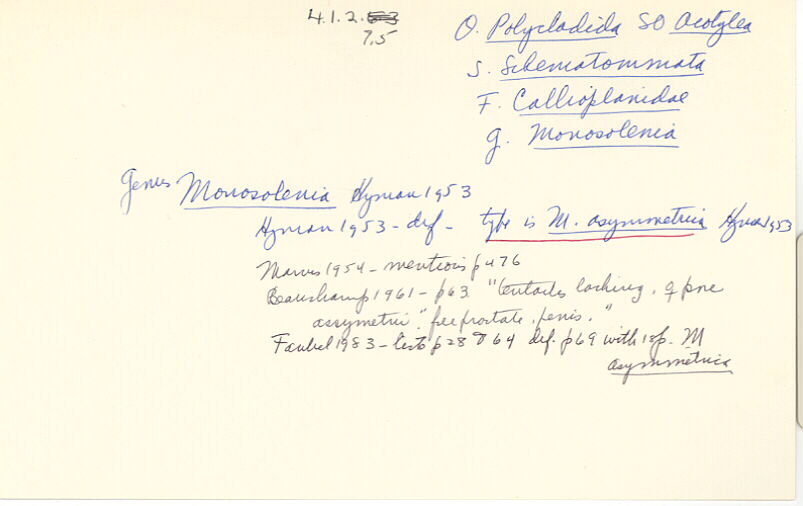 4.1.2.
7.5
O. Polycladida SO Acotylea
S. Schematommata
F. Callioplanidae
g. Monosolenia
Genus Monosolenia Hyman 1953
Hyman 1953 - def - type is M. asymmetrica Hyman 1953
Marcus 1954 - mentions p 476
Beauchamp 1961 - p63 "tentacles lacking, g pore
assymetri" "free prostate, penis."
Faubel 1983 - lists p28 & 64 def. p69 with 1 sp. M
asymmetrica